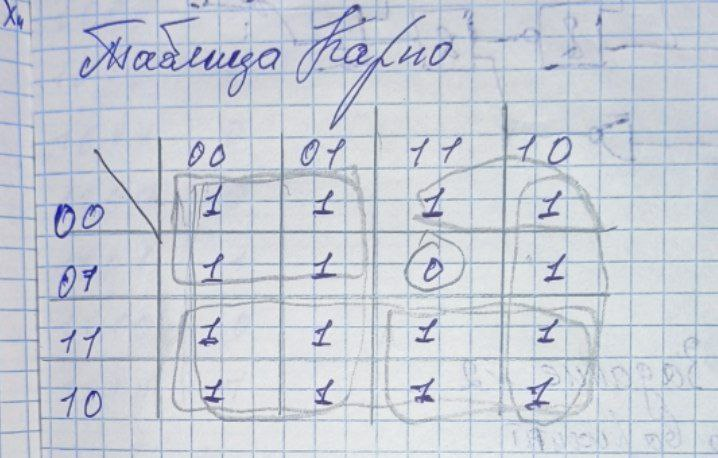 Xч
Таблица Карно
00 01 11 10
00 1 1 1 1
01 1 1 0 1
11 1 1 1 1
10 1 1 1 1